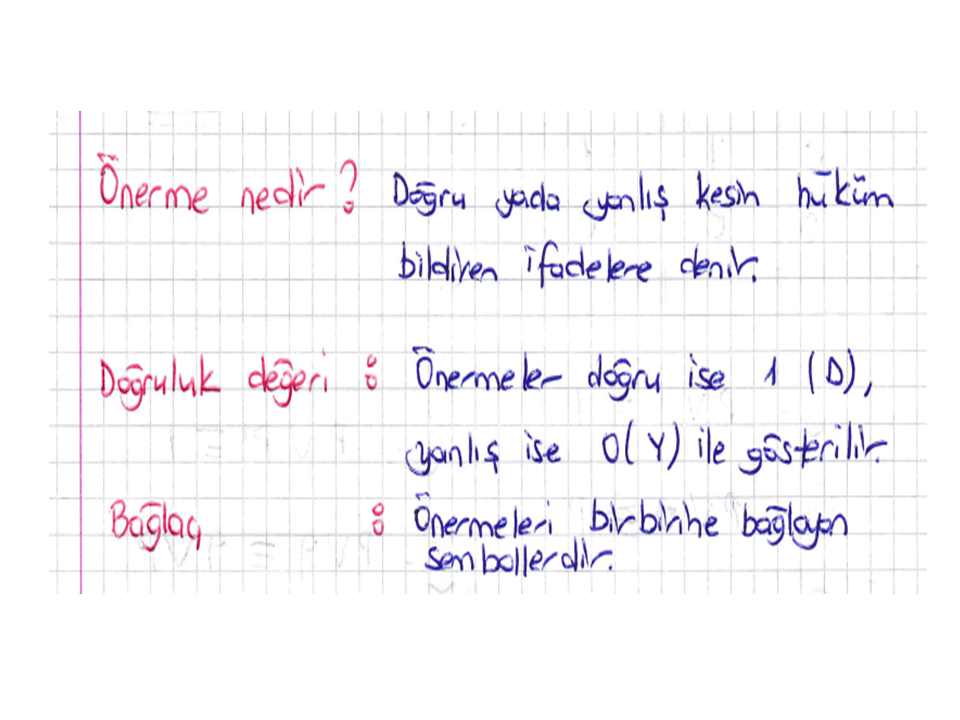 Önerme nedir? Doğru yada yanlış kesin hüküm
bildiren ifadelere denir.
Doğruluk değeri : Önermeler doğru ise 1 (D),
yanlış ise 0(Y) ile gösterilir.
Bağlaç : Önermeleri birbirine bağlayan
sembollerdir.